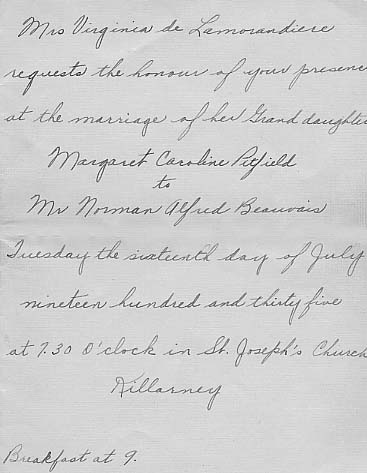 Mrs Virginia de Lamorandiere
requests the honour of your presence
at the marriage of her Grand daughter
Margaret Caroline Pitfield
to
Mr Norman Alfred Beauvais
Tuesday the sixteenth day of July
nineteen hundred and thirty five
at 7.30 O'clock in St. Joseph's Church
Killarney
Breakfast at 9.